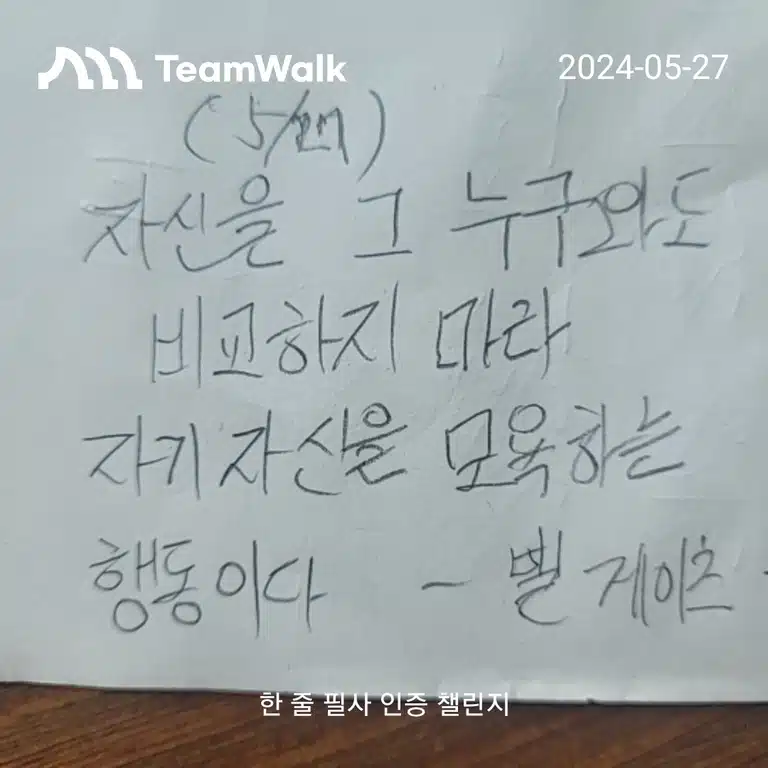 TeamWalk
2024-05-27
(5/27)
자신을 그 누구와도
비교하지 마라
자기 자신을 모욕하는
행동이다 - 빌 게이츠 -
한 줄 필사 인증 챌린지